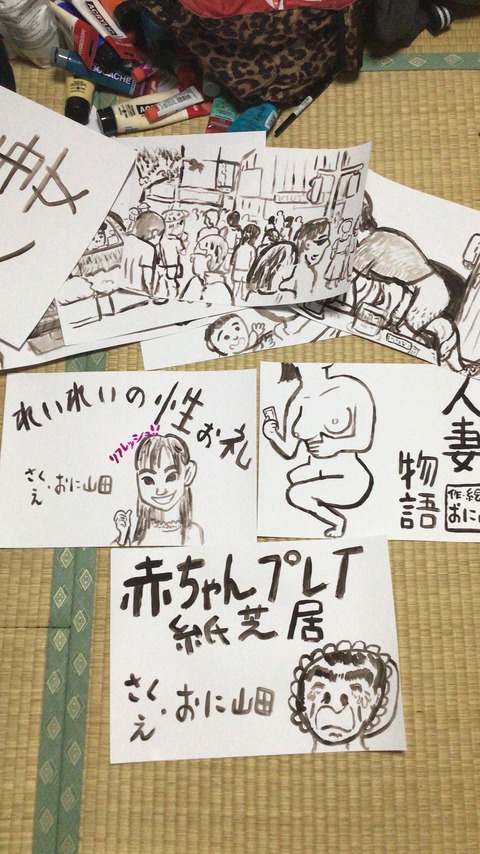 GOUACHE
れいれいの性お礼
リフレッシュ!!
さく
え
おに山田
人妻
物語
作・絵
おに
赤ちゃんプレイ
紙芝居
さく
え
おに山田